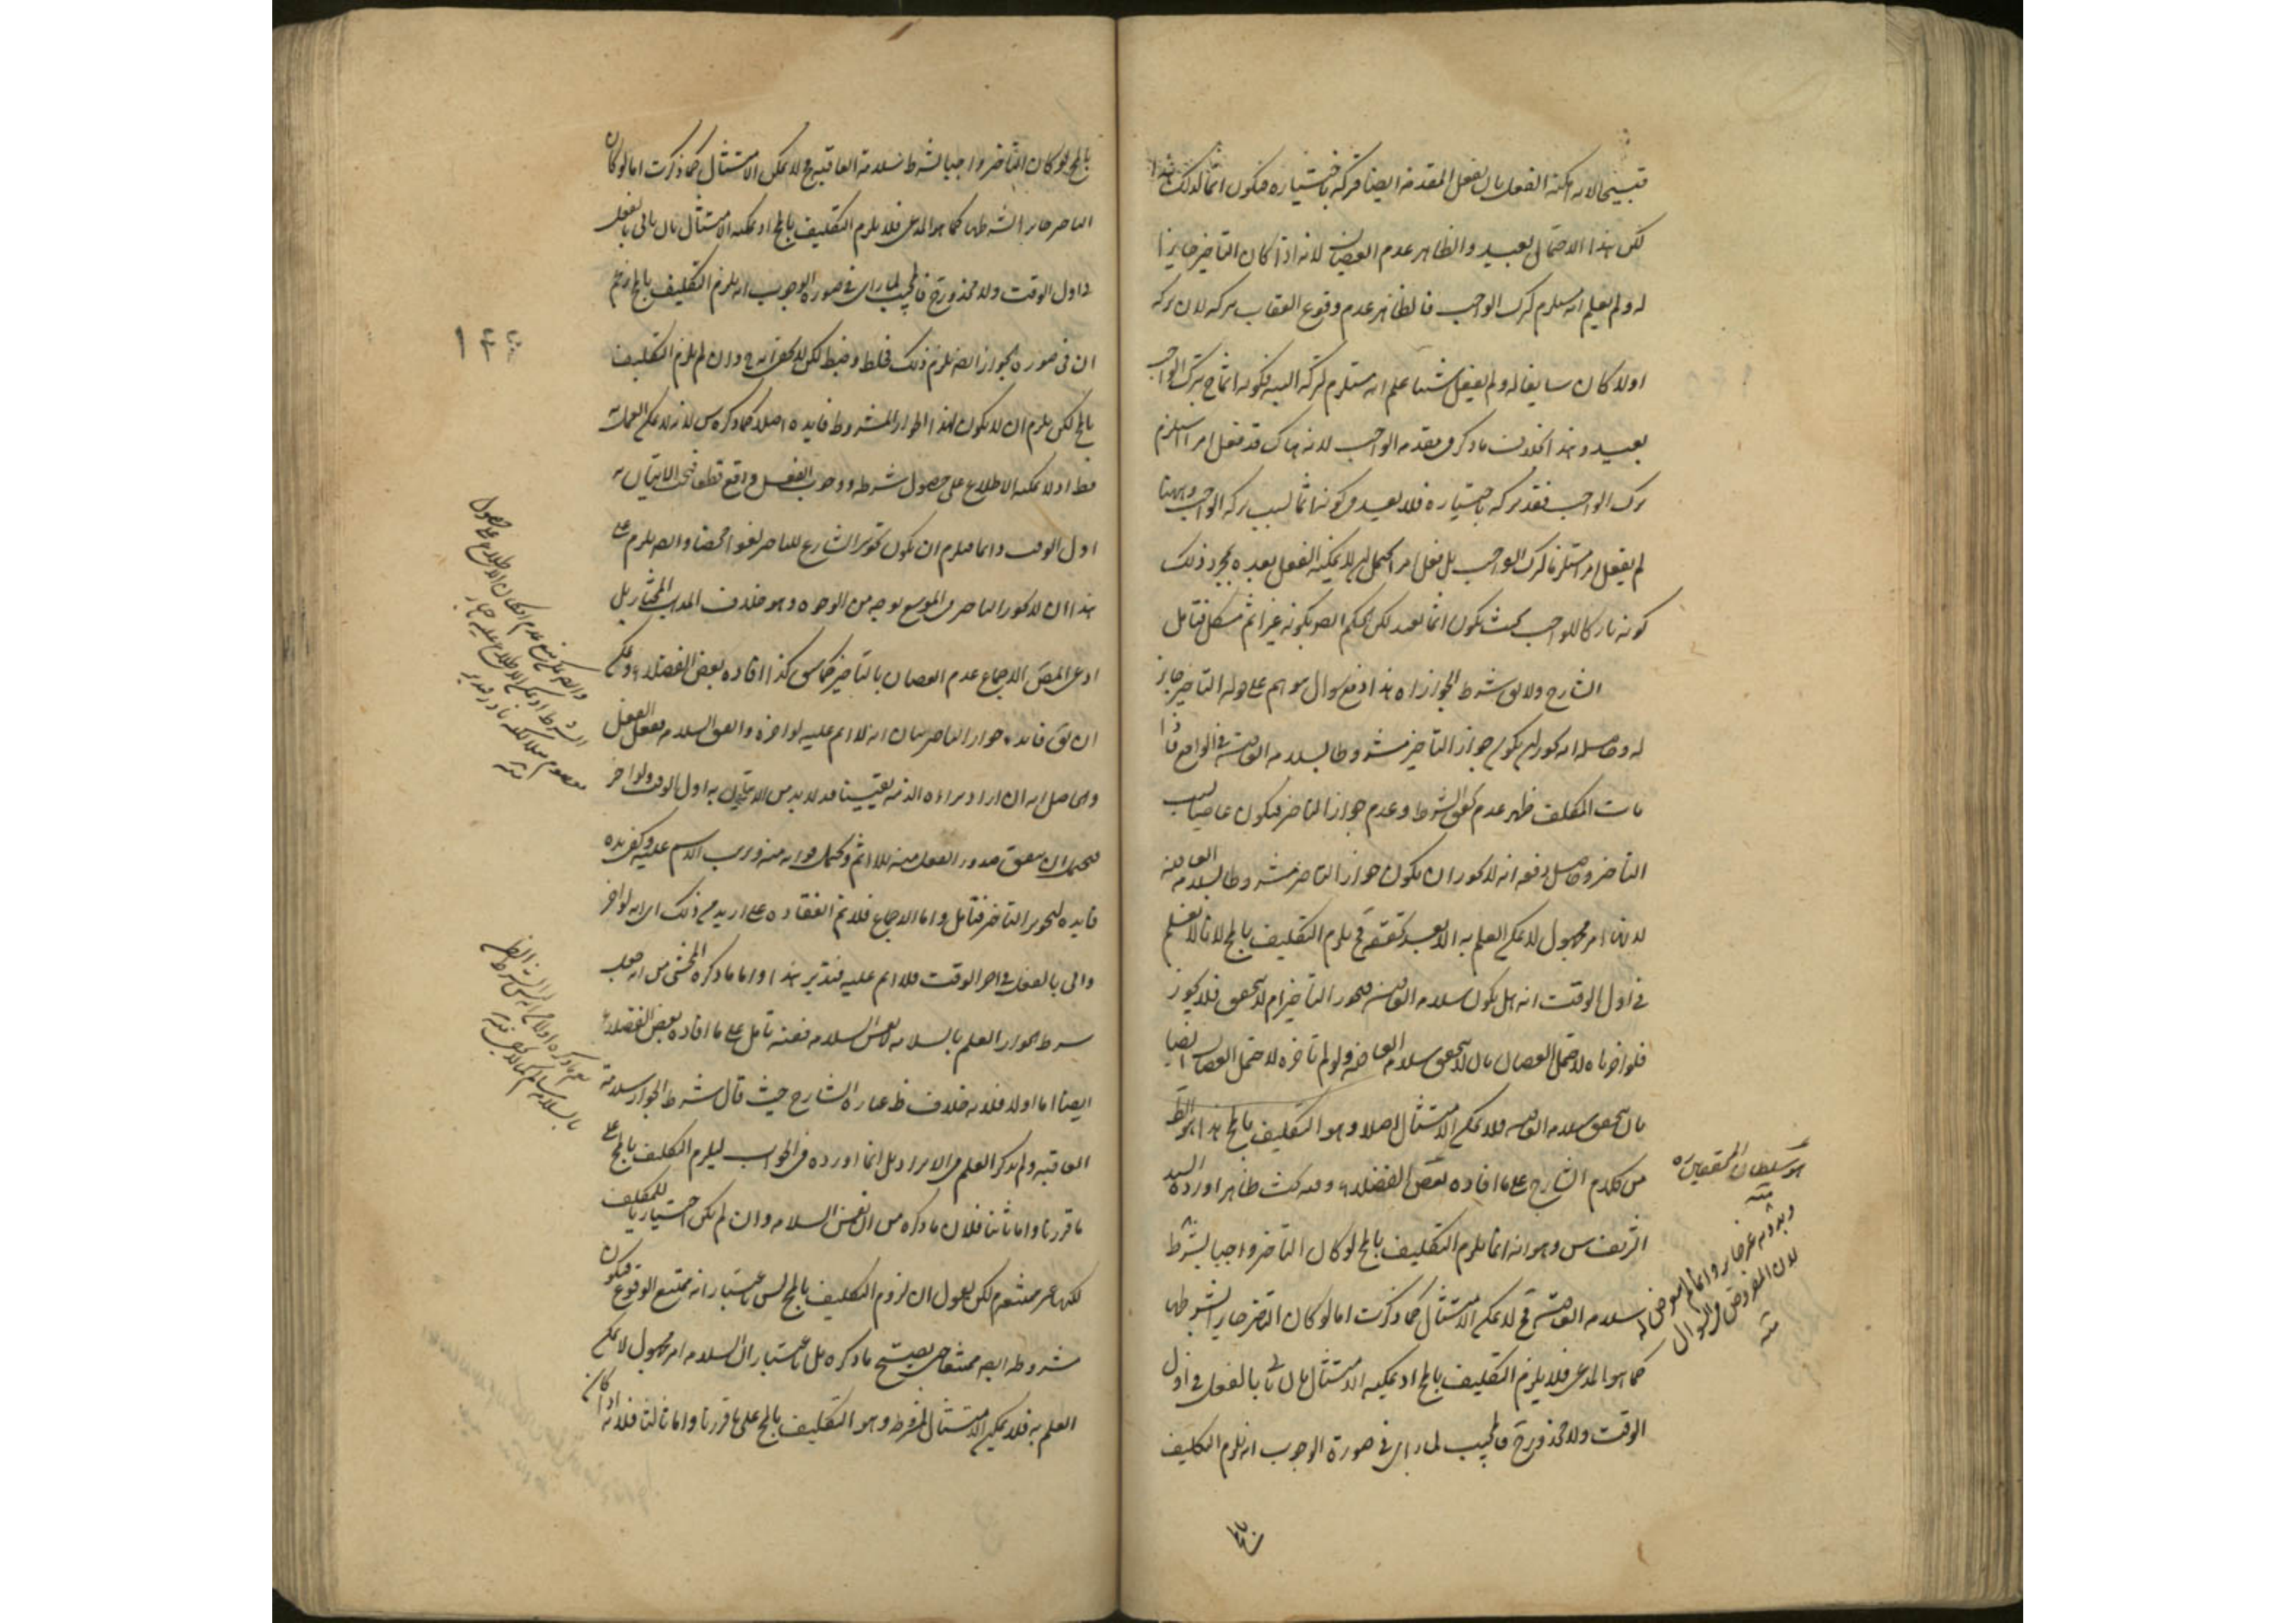 قبيحا لانه امكنه الفعل بان يفعل المقدمة ايضا فتركه باختياره فيكون اثما لذلك هذا
لكن هذا الاحتمال بعيد والظاهر عدم العصيان لانه اذا كان التاخير جايزا
له ولم يعلم انه مستلزم لترك الواجب فالظاهر عدم وقوع العقاب بتركه لان تركه
اولا كان سايغا له ولم يفعل شيئا علم انه مستلزم لتركه البتة فكونه اثما ح بترك الواجب
بعيد وهذا بخلاف ما ذكر في مقدمة الواجب لانه هناك قد فعل امرا استلزم
ترك الواجب فقد تركه باختياره فلا يعد في كونه اثما بسبب تركه الواجب وههنا
لم يفعل امرا مستلزما لترك الواجب بل فعل امرا يحتمل ان لا يمكنه الفعل بعده بمجرد ذلك
كونه تاركا للواجب بحيث يكون اثما بعيد لكن الحكم ايضا بكونه غير اثم مشكل فتامل
الشارح ولا يق شرط الجواز اه هذا دفع سوال يتوهم على قوله التاخير جايز
له وحاصله انه يجوز ان يكون جواز التاخير مشروطا بسلامة العاقبة في الواقع فاذا
مات المكلف ظهر عدم تحقق الشرط وعدم جواز التاخير فيكون عاصيا بسبب
التاخير وحاصل دفعه انه لا يجوز ان يكون جواز التاخير مشروطا بسلامة العاقبة
لانها امر مجهول لا يمكن العلم به الا بعد تحققه فح يلزم التكليف بالمح لانا لا نعلم
في اول الوقت انه هل يكون سلامة العاقبة فيجوز التاخير ام لا يتحقق فلا يجوز
فلو اخرناه لاحتمل العصيان بان لا يتحقق سلامة العاقبة ولو لم ناخره لاحتمل العصيان ايضا
بان يتحقق سلامة العاقبة فلا يمكن الامتثال اصلا وهو التكليف بالمح هذا هو الظ
من كلام الشارح على ما افاده بعض الفضلاء وفيه بحث ظاهر اورده السيد
الشريف س وهو انه انما يلزم التكليف بالمح لو كان التاخير واجبا بشرط
سلامة العاقبة فح لا يمكن الامتثال كما ذكرت اما لو كان التاخير جايزا بشرطها
كما هو المدعى فلا يلزم التكليف بالمح اذ يمكنه الامتثال بان ياتي بالفعل في اول
الوقت ولا محذور ح فالمجيب لما راى في صورة الوجوب انه يلزم التكليف
هو سلطان المحققين ره
منه
وبدونه غير جايز
لان المفروض في السوال
منه
بالمح لو كان التاخير واجبا بشرط سلامة العاقبة ح لا يمكن الامتثال كما ذكرت اما لو كان
التاخير جايزا بشرطها كما هو المدعى فلا يلزم التكليف بالمح اذ يمكنه الامتثال بان ياتي بالفعل
في اول الوقت ولا محذور ح فالمجيب لما راى في صورة الوجوب انه يلزم التكليف بالمح زعم
ان في صورة الجواز ايضا يلزم ذلك فخلط وخبط لكن لا يخفى انه ح وان لم يلزم التكليف
بالمح لكن يلزم ان لا يكون لهذا الجواز المشروط فايدة اصلا كما ذكره س لانه لا يمكن العمل به
قط اذ لا يمكنه الاطلاع على حصول شرطه ووجوب الفعل واقع قطعا فيجب الاتيان به
اول الوقت دائما فيلزم ان يكون تجويز الشارع للتاخير لغوا محضا وايضا يلزم على
هذا ان لا يجوز التاخير في الموسع بوجه من الوجوه وهو خلاف المذهب المختار بل
ادعى المص الاجماع عدم العصيان بالتاخير كما سبق كذا افاده بعض الفضلاء ويمكن
ان يق فايدة جواز التاخير بيان انه لا اثم عليه لو اخره واتفق السلامة ففعل الفعل
والحاصل انه ان اراد براءة الذمة يقينا فلا بد من الاتيان به اول الوقت ولو اخر
فيحتمل ان يتفق صدور الفعل منه بلا اثم ويحتمل فواته منه وترتب الاثم عليه وكفى بهذه
فايدة لتجويز التاخير فتامل واما الاجماع فلا نم انعقاده على ازيد من ذلك اي انه لو اخر
واتى بالفعل في اخر الوقت فلا اثم عليه فتدبر هذا واما ما ذكره المحشي من انه جعل
شرط الجواز العلم بالسلامة لا نفس السلامة ففيه تامل على ما افاده بعض الفضلاء
ايضا اما اولا فلانه خلاف ظ عبارة الشارح حيث قال شرط الجواز سلامة
العاقبة ولم يذكر العلم في الايراد بل انما اورده في الجواب ليلزم التكليف بالمح على
ما قررنا واما ثانيا فلان ما ذكره من ان نفس السلامة وان لم يكن اختياريا للمكلف
لكنها غير ممتنعة لكن نقول ان لزوم التكليف بالمح ليس باعتبار انه ممتنع الوقوع فيكون
مشروطه ايضا ممتنعا حتى يصح ما ذكره بل باعتبار ان السلامة امر مجهول لا يمكن
العلم به فلا يمكن الامتثال لمشروطه وهو التكليف بالمح على ما قررنا واما ثالثا فلانه اذا كان